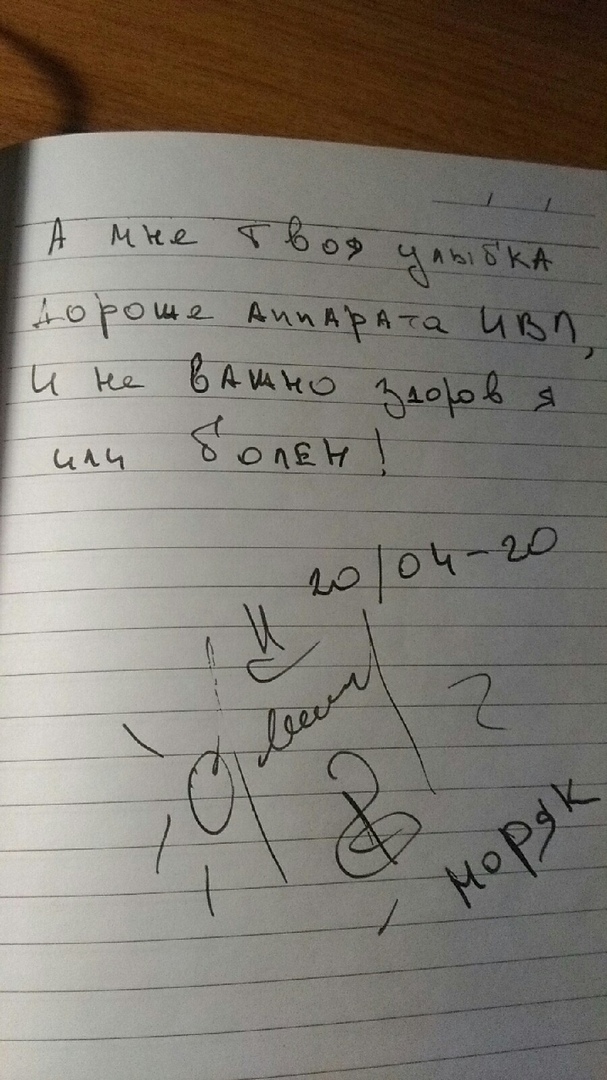 А мне твоя улыбка
дороже аппарата ИВЛ,
и не важно здоров я
или болен!
20/04-20
моряк